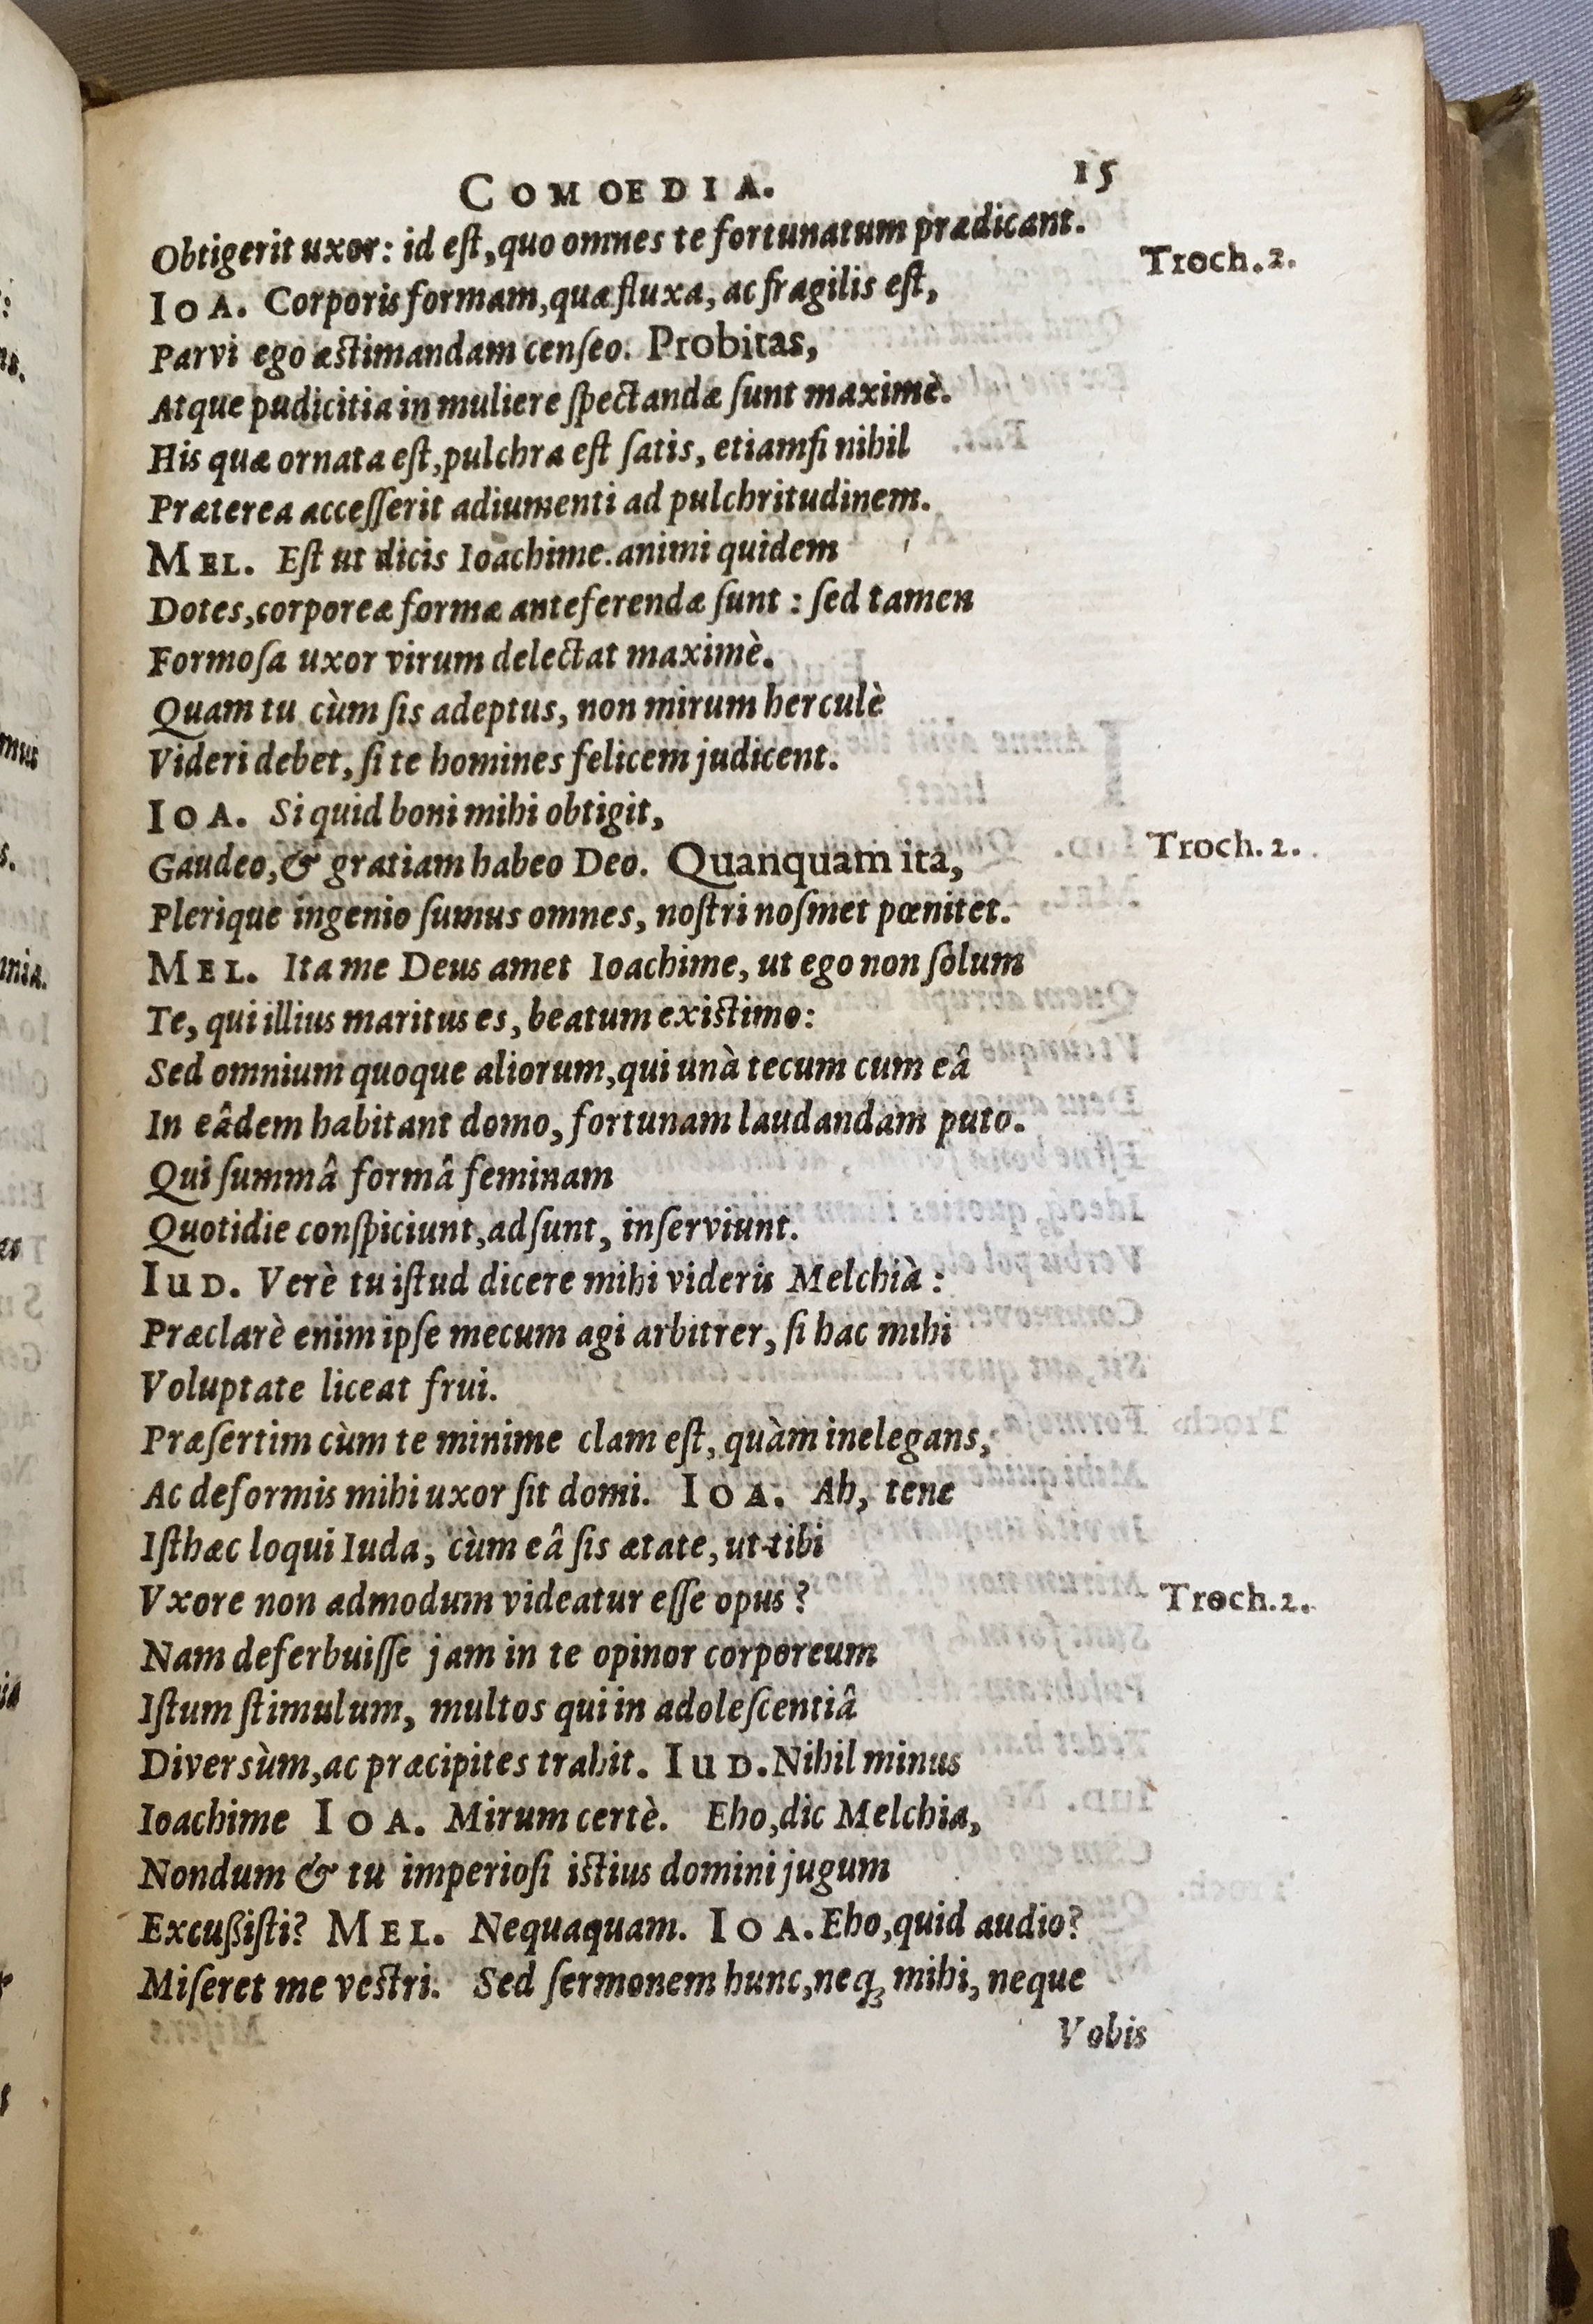 COMOEDIA. 15
Obtigerit uxor: id eſt, quo omnes te fortunatum prædicant.
Troch. 2.
IOA. Corporis formam, quæ fluxa, ac fragilis eſt,
Parvi ego æstimandam cenſeo. Probitas,
Atque pudicitia in muliere ſpectandæ ſunt maximè.
His quæ ornata eſt, pulchra eſt ſatis, etiamſi nihil
Præterea acceſſerit adiumenti ad pulchritudinem.
MEL. Eſt ut dicis Ioachime. animi quidem
Dotes, corporeæ formæ anteferendæ ſunt: ſed tamen
Formoſa uxor virum delectat maximè.
Quam tu cùm ſis adeptus, non mirum herculè
Videri debet, ſi te homines felicem judicent.
IOA. Si quid boni mihi obtigit,
Gaudeo, & gratiam habeo Deo. Quanquam ita,
Troch. 2.
Plerique ingenio ſumus omnes, noſtri noſmet pœnitet.
MEL. Ita me Deus amet Ioachime, ut ego non ſolum
Te, qui illius maritus es, beatum existimo:
Sed omnium quoque aliorum, qui unà tecum cum eâ
In eâdem habitant domo, fortunam laudandam puto.
Qui ſummâ formâ feminam
Quotidie conſpiciunt, adſunt, inſerviunt.
IuD. Verè tu iſtud dicere mihi videris Melchià:
Præclarè enim ipſe mecum agi arbitrer, ſi hac mihi
Voluptate liceat frui.
Præſertim cùm te minime clam eſt, quàm inelegans,
Ac deformis mihi uxor ſit domi. IOA. Ah, tene
Iſthæc loqui Iuda, cùm eâ ſis ætate, ut tibi
Vxore non admodum videatur eſſe opus?
Troch. 2.
Nam deferbuiſſe jam in te opinor corporeum
Iſtum ſtimulum, multos qui in adoleſcentiâ
Diverſùm, ac præcipites trahit. IuD. Nihil minus
Ioachime IOA. Mirum certè. Eho, dic Melchia,
Nondum & tu imperioſi istius domini jugum
Excußiſti? MEL. Nequaquam. IOA. Eho, quid audio?
Miſeret me vestri. Sed ſermonem hunc, neq; mihi, neque
Vobis